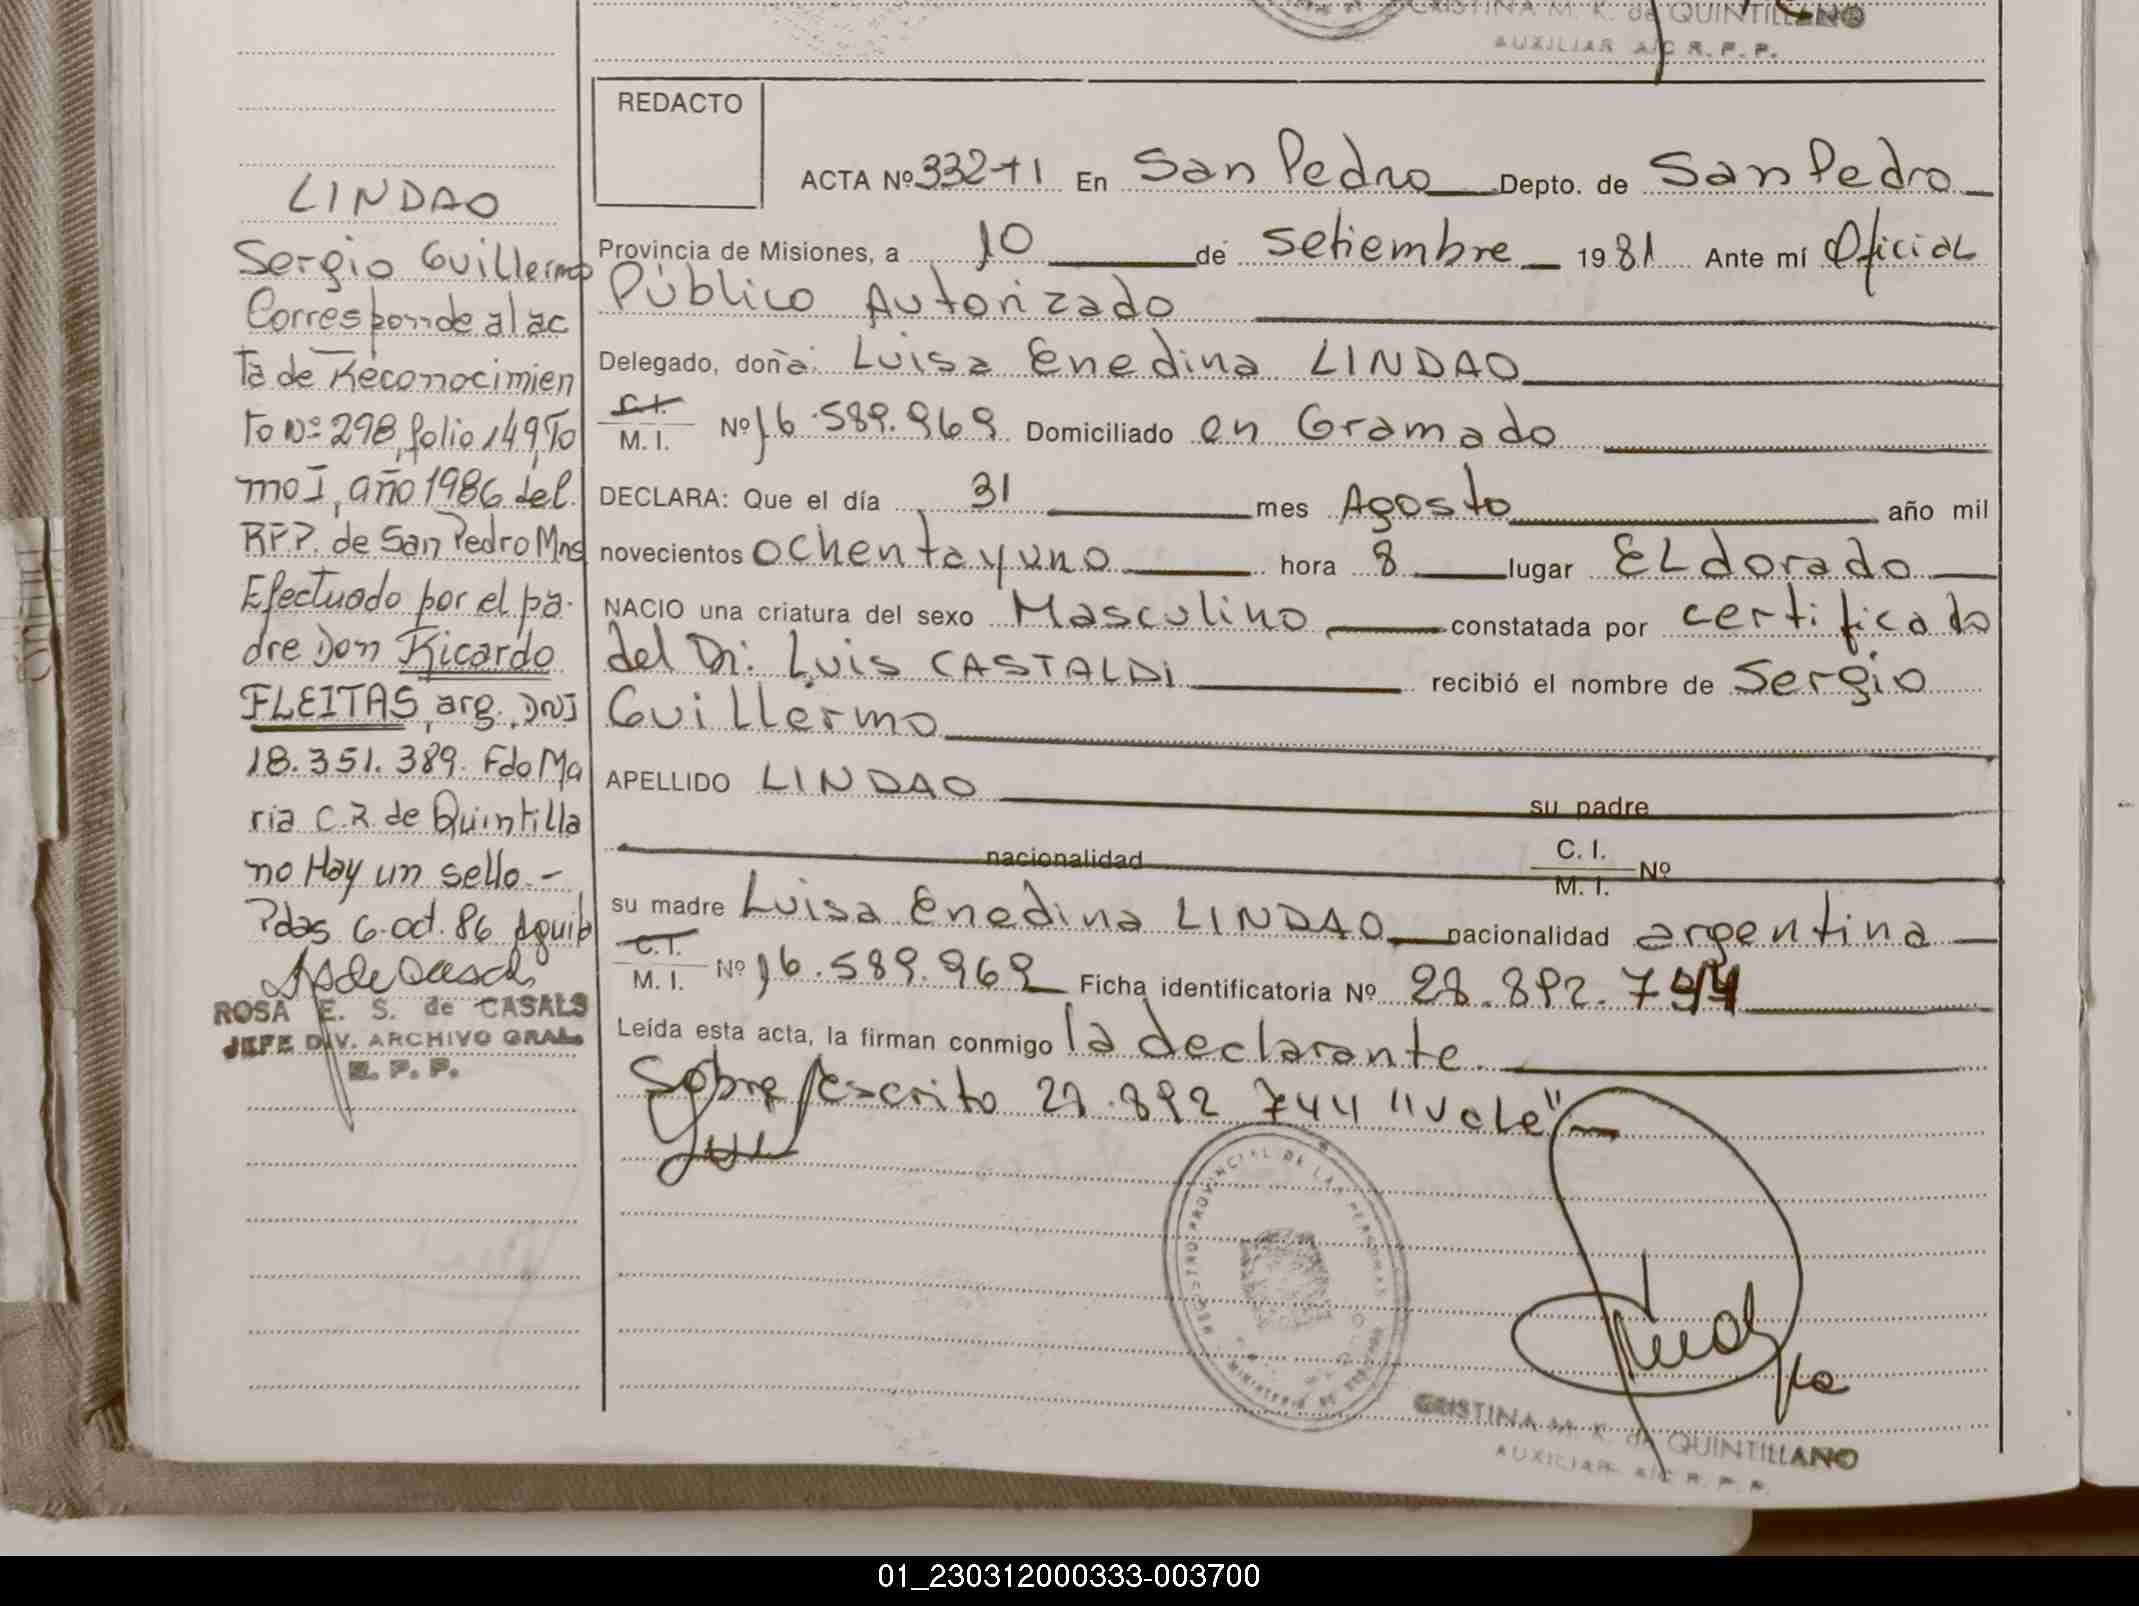 CRISTINA M. K. de QUINTILLANO
AUXILIAR A/C R. P. P.
REDACTO
ACTA Nº 332-T1 En San Pedro Depto. de San Pedro
Provincia de Misiones, a 10 de Setiembre 1981 Ante mí Oficial
Público Autorizado
Delegado, doña: Luisa Enedina LINDAO
C.I.
M. I. Nº 16.589.969 Domiciliado en Gramado
DECLARA: Que el día 31 mes Agosto año mil
novecientos ochenta y uno hora 8 lugar ELdorado
NACIO una criatura del sexo Masculino constatada por certificado
del Dr: Luis CASTALDI recibió el nombre de Sergio
Guillermo
APELLIDO LINDAO su padre
nacionalidad C. I.
M. I. Nº
su madre Luisa Enedina LINDAO nacionalidad argentina
C.I.
M. I. Nº 16.589.969 Ficha identificatoria Nº 28.892.744
Leída esta acta, la firman conmigo la declarante.
Sobre escrito 28.892 744 "vale"
LINDAO
Sergio Guillermo
Corresponde al ac
ta de Reconocimien
to Nº 298, folio 149, To
mo I, año 1986 del
RPP. de San Pedro Mns
Efectuado por el pa-
dre Don Ricardo
FLEITAS, arg. DNI
18.351.389. Fdo Ma
ria C. R. de Quintilla
no Hay un sello.-
Pdas 6-oct. 86
ROSA E. S. de CASALS
JEFE DIV. ARCHIVO GRAL.
R. P. P.
CRISTINA M. K. de QUINTILLANO
AUXILIAR A/C R. P. P.
01_230312000333-003700